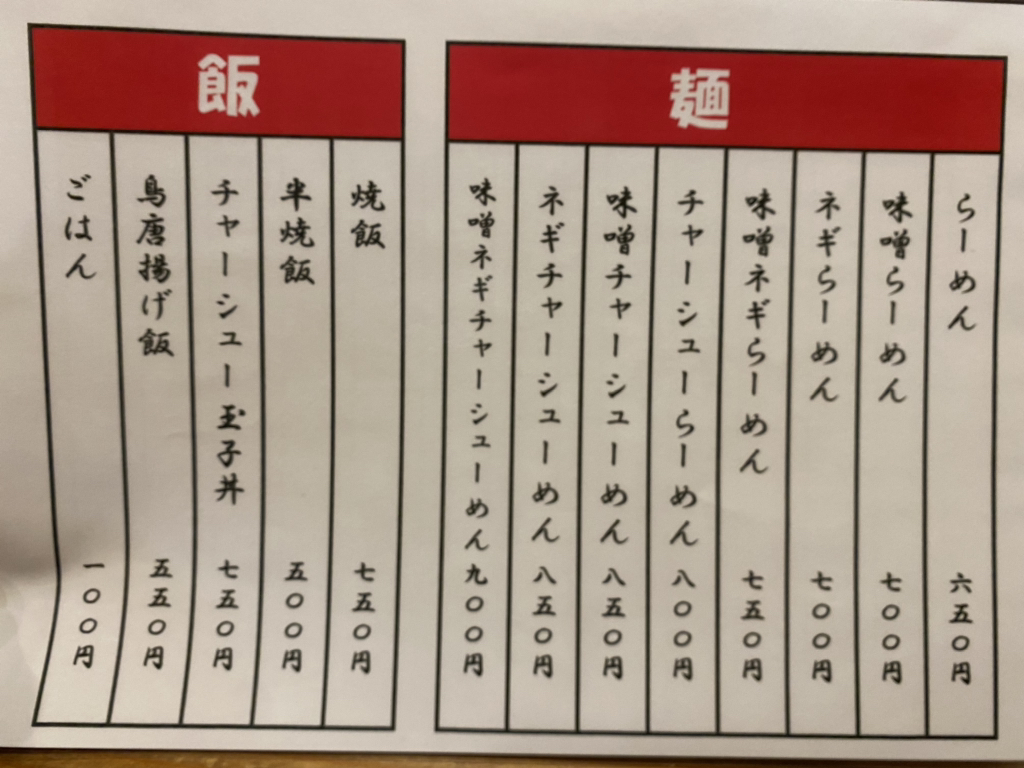 麺
らーめん 六五〇円
味噌らーめん 七〇〇円
ネギらーめん 七〇〇円
味噌ネギらーめん 七五〇円
チャーシューらーめん 八〇〇円
味噌チャーシューめん 八五〇円
ネギチャーシューめん 八五〇円
味噌ネギチャーシューめん 九〇〇円
飯
焼飯 七五〇円
半焼飯 五〇〇円
チャーシュー玉子丼 七五〇円
鳥唐揚げ飯 五五〇円
ごはん 一〇〇円